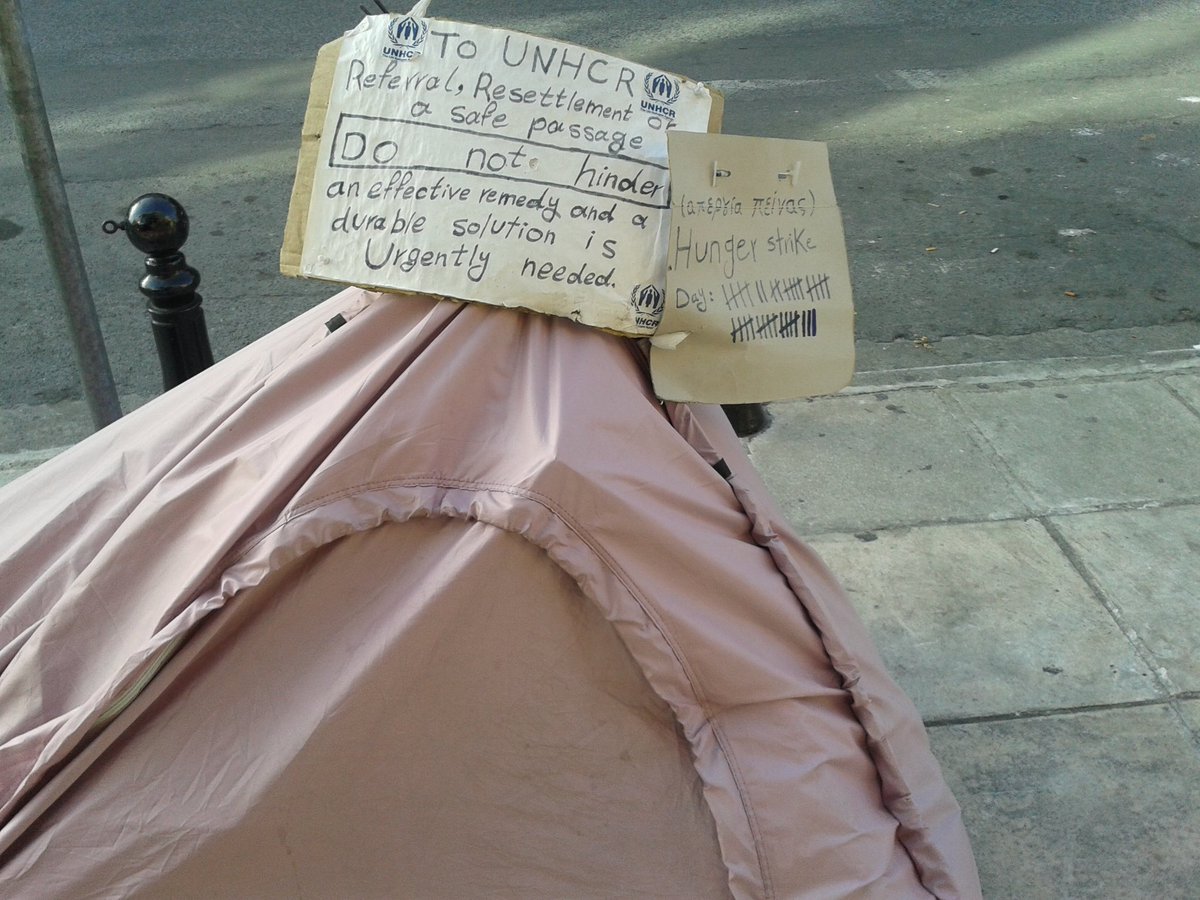 UNHCR
TO UNHCR
UNHCR
Referral, Resettlement or
a safe passage
Do not hinder
an effective remedy and a
durable solution is
Urgently needed.
UNHCR
(απεργία πείνας)
Hunger strike
Day: